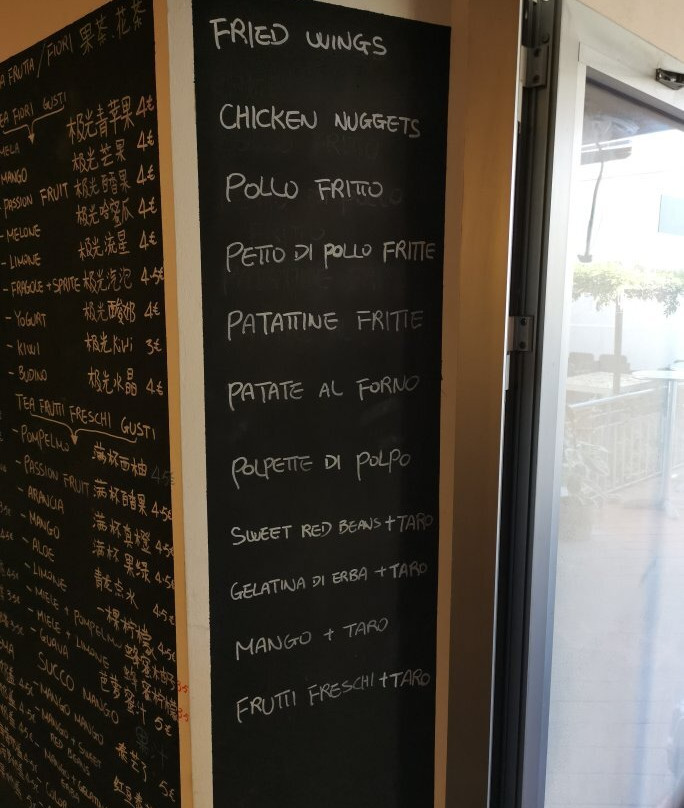 FRUTTA / FIORI 果茶.花茶
TEA FIORI GUSTI
MELA 极光青苹果 4€
MANGO 极光芒果 4€
- PASSION FRUIT 极光百香果 4€
- MELONE 极光哈密瓜 4€
- LIMONE 极光流星 4€
- FRAGOLE + SPRITE 极光汽泡 4.5€
- YOGURT 极光酸奶 4€
- KIWI 极光Kiwi 3€
- BUDINO 极光水晶 4€
TEA FRUTTI FRESCHI GUSTI
- POMPELMO 满杯西柚 4.5€
- PASSION FRUIT 满杯百香果 4.5€
- ARANCIA 满杯香橙 4.5€
- MANGO 满杯果缤 4.5€
- ALOE 4.5€
- LIMONE 一棵柠檬 4.5€
- MIELE + POMPELMO 蜂蜜柚
- MIELE + LIMONE 蜂蜜柠檬
- GUAVA 芭萝蜜汁 5€
SUCCO MANGO
- MANGO MANGO 5€
- MANGO + SWEET RED BEANS
FRIED WINGS
CHICKEN NUGGETS
POLLO FRITTO
PETTO DI POLLO FRITTE
PATATTINE FRITTE
PATATE AL FORNO
POLPETTE DI POLPO
SWEET RED BEANS + TARO
GELATINA DI ERBA + TARO
MANGO + TARO
FRUTTI FRESCHI + TARO